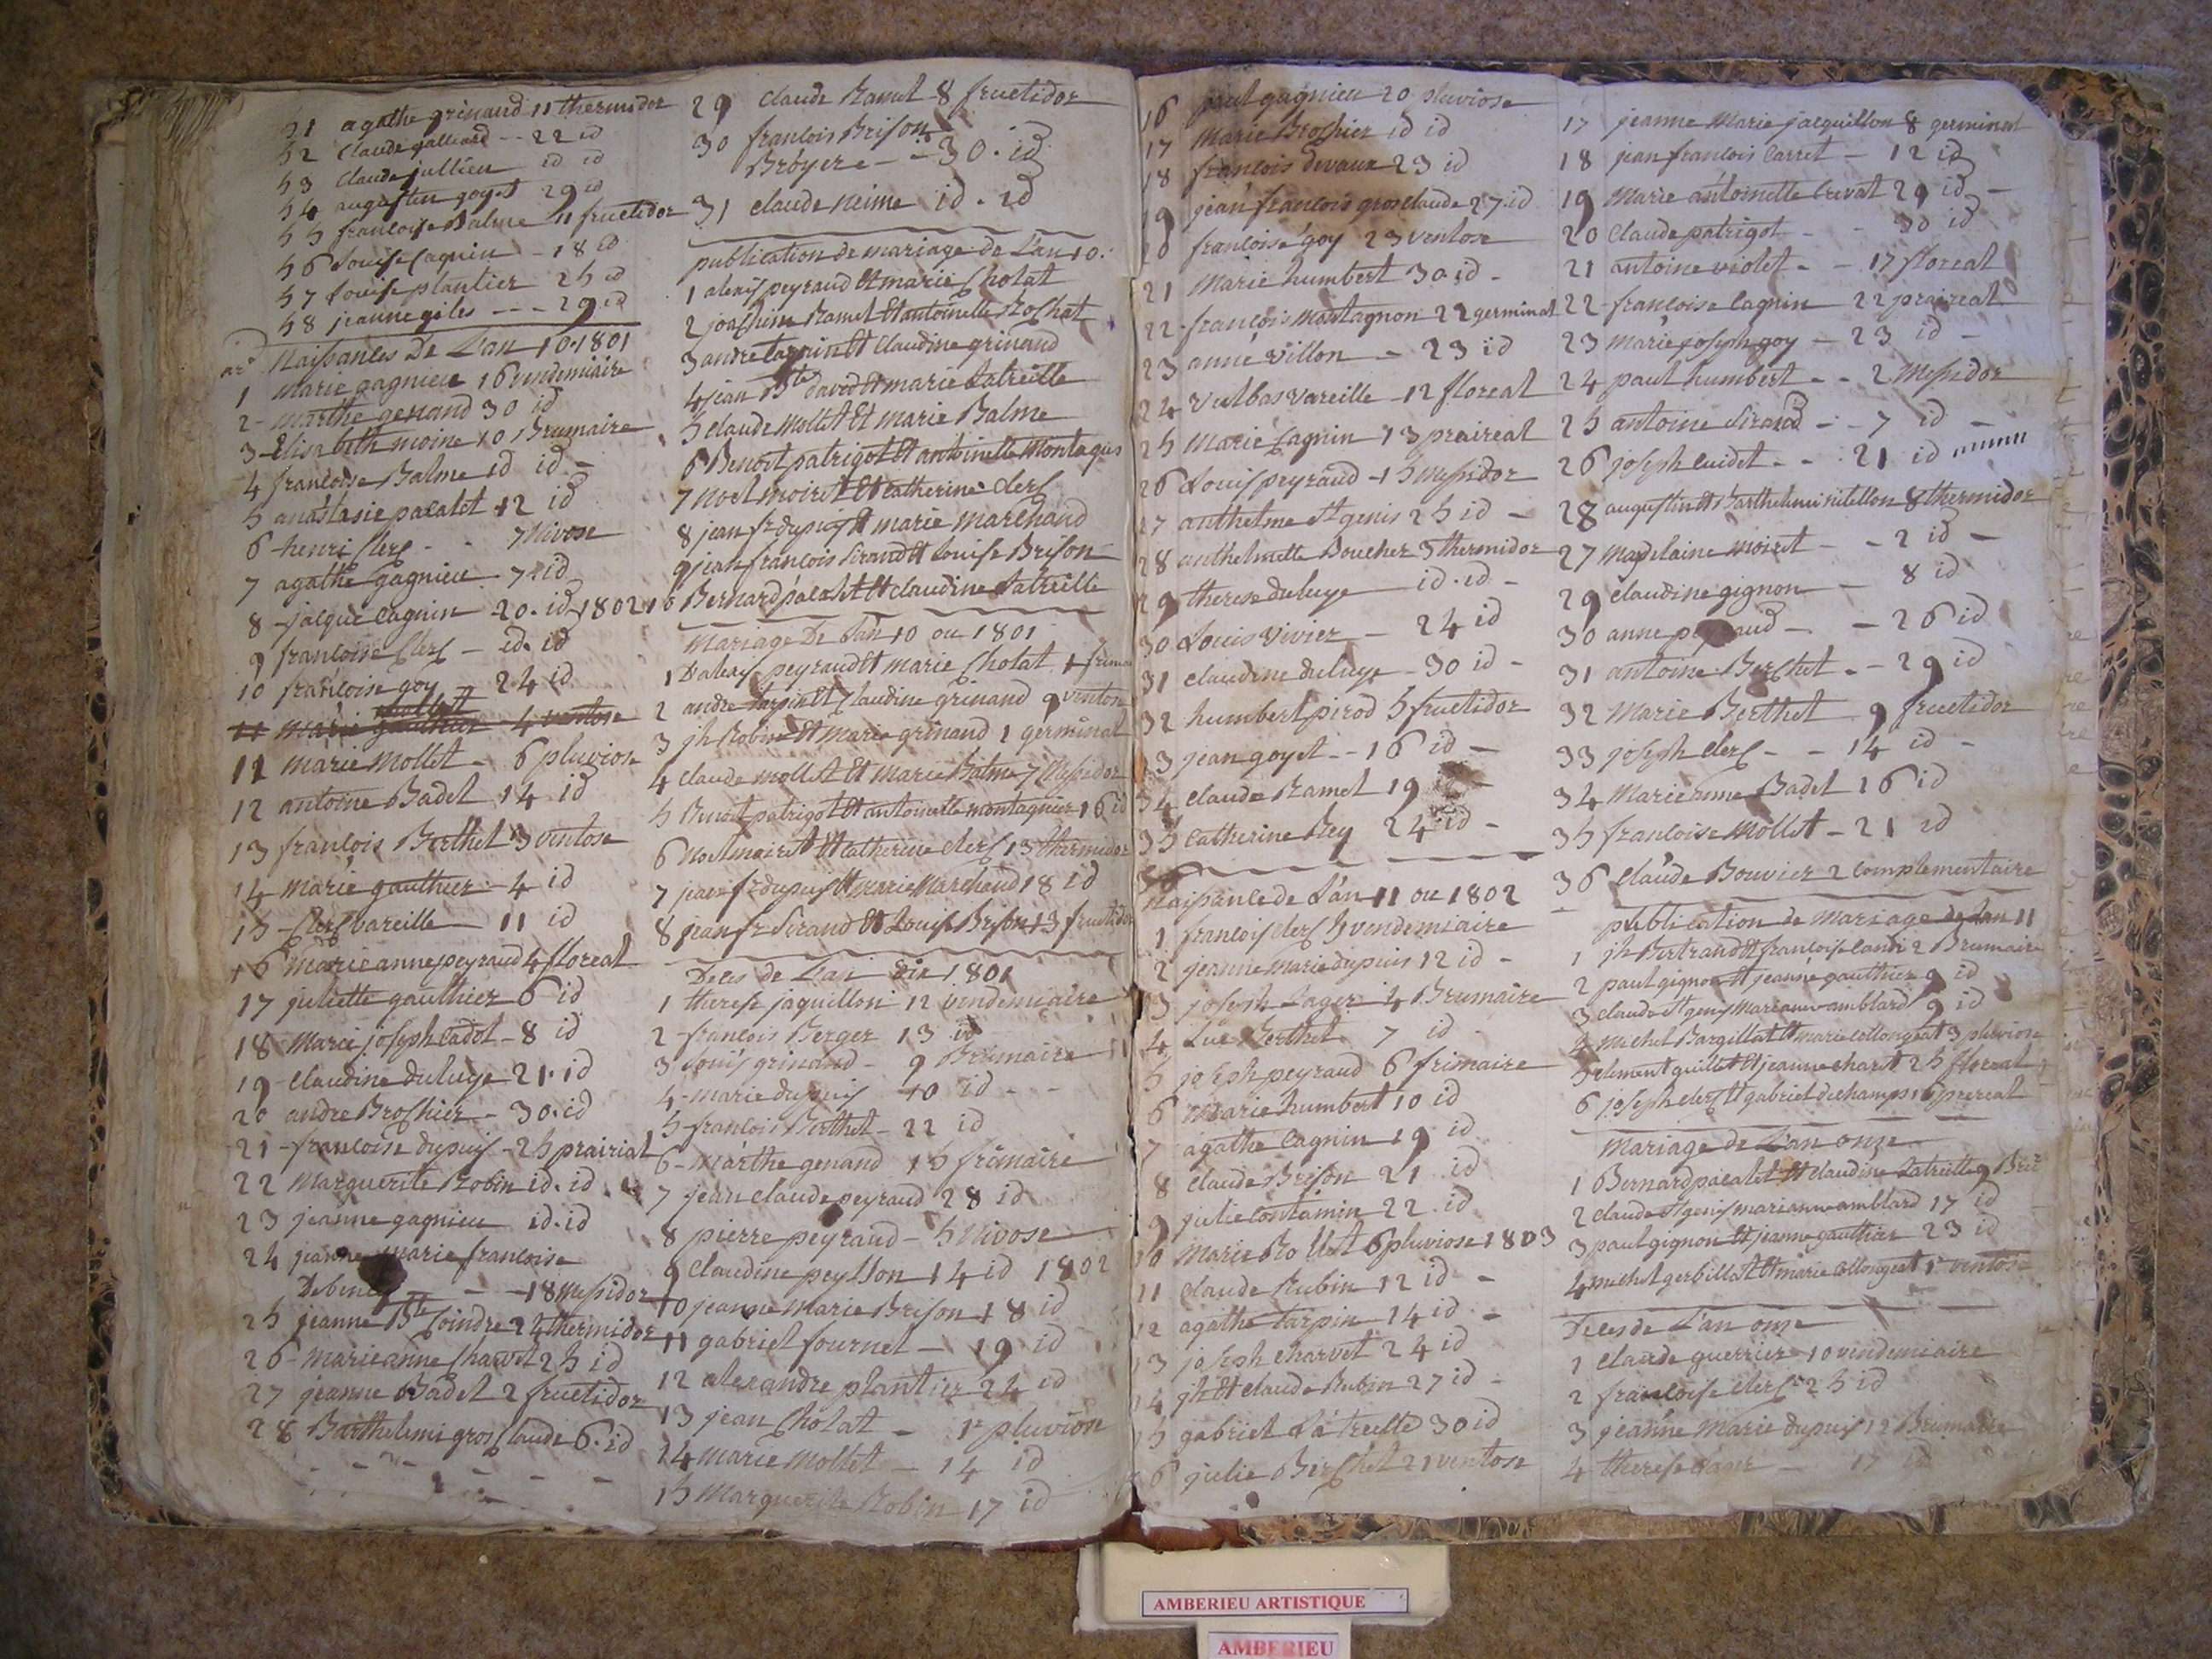 51 agathe grinand 11 thermidor
52 Claude galland -- 22 id
53 Claude jullien id id
54 augustin goyet 29 id
55 francoise Balme 11 fructidor
56 Louise Cagnin - 18 id
57 Louise plantier 25 id
58 jeanne giles --- 29 id
Naissances De L'an 10. 1801
1 Marie gagnieu 16 vendemiaire
2 - Marthe genand 30 id
3 - Elisabeth moine 10 Brumaire
4 francoise Balme id id -
5 anastasie pacalet 12 id
6 henri Clerc - - 7 Nivose
7 agathe gagnieu - 7 - id
8 - jacque Cagnin - 20. id 1802
9 francoise Clerc - id. id
10 francoise goy - 24 id
11 marie gauthier 4 ventose
11 marie Mollet - 6 pluviose
12 antoine Badet 14 id
13 francois Berthet 3 ventose
14 marie gauthier - 4 id
15 - Clerc vareille - 11 id
16 marie anne peyraud 4 floreal
17 juliette gauthier 6 id
18 Marie joseph Cadot - 8 id
19 Claudine duluye 21. id
20 andre Brochier - 30. id
21 - francoise dupuis - 25 prairial
22 Marguerite Robin id. id
23 jeanne gagnieu id. id
24 jeanne marie francoise
- - 18 Messidor
25 jeanne Bte Cointre 24 thermidor
26 - marie anne Charvet 25 id
27 jeanne Badet 2 fructidor
28 Barthelemi gros Claude 6. id
29 Claude Ramet 8 fructidor
30 francois Brison
Broyere - - 30. id
31 claude neime id. id
publication de mariage de L'an 10.
1 alexis peyraud Et marie Cholat
2 joachim Ramet Et antoinette Rochat
3 andre tarpin Et Claudine grinand
4 jean Bte david Et marie Latreille
5 claude Mollet Et marie Balme
6 Benoit patrigot Et antoinette Montagnier
7 Noel moiret Et Catherine clerc
8 jean fr dupuis Et marie marchand
9 jean francois Sirand Et Louise Brison
10 Bernard pacalet Et claudine Latreille
Mariage De L'an 10 ou 1801
1 D'alexis peyraud Et marie Cholat 1 frima
2 andre tarpin Et Claudine grinand 9 ventose
3 jh Robin Et marie grinand 1 germinal
4 claude mollet Et marie Balme 7 Messidor
5 Benoit patrigot Et antoinette montagnier 16 id
6 Noel moiret Et Catherine clerc 13 thermidor
7 jean fr dupuis Et marie Marchand 18 id
8 jean fr Sirand Et Louise Brison 13 fructidor
Deces de L'an dix 1801
1 therese jaquillon 12 vendemiaire
2 - francois Berger 13 id
3 Louis grinand - 9 Brumaire
4 - marie dupuis 10 id - -
5 - francois Berthet - 22 id
6 - marthe genand 15 frimaire
7 jean claude peyraud 28 id
8 pierre peyraud - 5 Nivose
9 Claudine peysson 14 id 1802
10 jeanne marie Brison 18 id
11 gabriel fournet - 19 id
12 alexandre plantier 24 id
13 jean Cholat - 1r pluviose
14 marie Mollet - 14 id
15 Marguerite Robin 17 id
16 paul gagnieu 20 pluviose
17 Marie Brochier id id
18 francois devaux 23 id
19 jean francois gros claude 27. id
20 francoise goy 23 ventose
21 Marie humbert 30 id -
22 - francois Montagnon 22 germinal
23 anne Villon - 23 id
24 Vulbas vareille - 12 floreal
25 Marie Cagnin 13 praireal
26 Louis peyraud - 15 Messidor
27 anthelme St genis 25 id -
28 anthelmette Boucher 3 thermidor
29 therese duluye id. id -
30 Louis Vivier - 24 id
31 claudine duluye - 30 id -
32 humbert pirod 5 fructidor
33 jean goyet - - 16 id -
34 Claude Ramet 19 -
35 Catherine Rey 24 id -
Naissance de L'an 11 ou 1802
1 francois clerc 5 vendemiaire
2 jeanne marie dupuis 12 id -
3 joseph Lager 4 Brumaire
4 Luc Berthet 7 id -
5 joseph peyraud 6 frimaire
6 marie humbert 10 id
7 agathe Cagnin 19 id
8 claude Brison 21 id
9 julie Contamin 22. id
10 Marie Rollet 6 pluviose 1803
11 Claude Rubin 12 id -
12 agathe tarpin 14 id -
13 joseph charvet 24 id
14 jh Et claude Rubin 27 id -
15 gabriel Latreille 30 id
16 julie Berchet 21 ventose
17 jeanne Marie jacquillon 8 germinal
18 jean francois Carret - 12 id
19 Marie antoinette Crevat 29 id -
20 Claude patrigot - - 30 id
21 antoine violet - - 17 floreal
22 - francoise Cagnin 22 praireal
23 marie joseph goy - 23 id -
24 paul humbert - - 2 Messidor
25 antoine Sirand - - 7 id -
26 joseph Cuidet - - 21 id
28 augustin Et Barthelemi nitellon 8 thermidor
27 Madelaine moiret - - 2 id -
29 claudine gignon - 8 id
30 anne - - 26 id
31 antoine Berchet - - 29 id
32 Marie Berthet 9 fructidor
33 joseph clerc - - 14 id -
34 Marie anne Badet 16 id
35 francoise Mollet - 21 id
36 Claude Bouvier 2 complementaire
publication de mariage de L'an 11
1 jh Bertrand Et francoise 2 Brumaire
2 paul gignon Et jeanne gauthier 9 id
3 claude St genis marianne amblard 9 id
4 michel Bargillat Et marie collongeat 3 pluviose
5 clement guillet Et jeanne charet 25 floreal
6 joseph clerc Et gabriel dechamps 16 prereal
Mariage de L'an onze
1 Bernard pacalet Et claudine Latreille 9 Bru
2 claude St genis marianne amblard 17 id
3 paul gignon Et jeanne gauthier 23 id
4 michel gerbillat Et marie collongeat 1r ventose
Deces de L'an onze
1 Claude guerrier - 10 vendemiaire
2 francoise clerc - 25 id
3 jeanne Marie dupuis 12 Brumaire
4 therese Lager - 17 id
AMBERIEU ARTISTIQUE
AMBERIEU